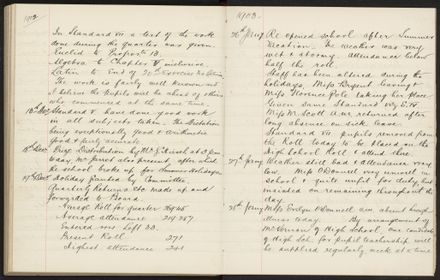 1902
In Standard VII a test of the work
done during the quarter was given.
Euclid to Proposn 13.
Algebra to Chapter V inclusive.
Latin to End of
The work is fairly well known and
I believe the pupils will be ahead of others
who commenced at the same time.
Standard V have done good work
in all subjects taken. The Dictation
being exceptionally good & arithmetic
good & fairly accurate.
Prize Distribution by at 3 pm
today. also present after which
the school broke up for Summer Holidays.
Holiday granted by Committee
Quarterly Returns etc made up and
forwarded to Board.
Average Roll for quarter
Average attendance
Entered Left 33.
Present Roll 271
Highest attendance
1903.
Re opened school after Summer
Vacation. The weather was very
wet & stormy. Attendance below
half the roll.
Staff has been altered during the
holidays, Miss Bryant leaving &
Miss Florence Pole taking her place.
Given same Standard
Miss M. Scott also returned after
long absence on sick leave.
Standard VII pupils removed from
the Roll today to be placed on the
High School Roll & attend there.
Weather still bad & attendance very
low. Miss O'Donnell very unwell in
School & quite unfit for duty, but
insisted on remaining throughout the
day.
Miss Evelyn O'Donnell absent through
illness today. By arrangement of
of High School, one
of High Sch. for pupil teachership will
be supplied regularly, week at a time